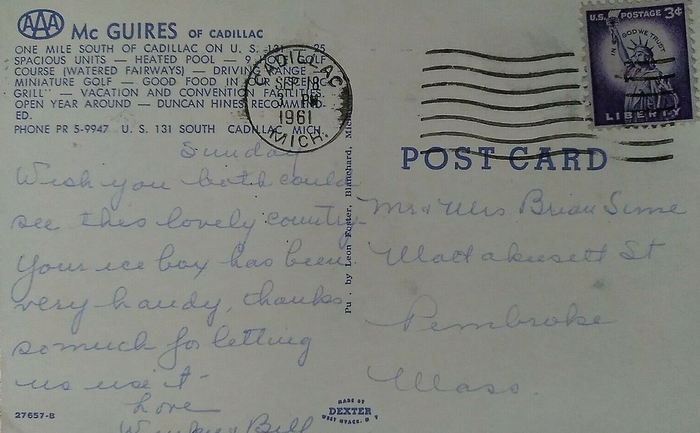 AAA Mc GUIRES OF CADILLAC
ONE MILE SOUTH OF CADILLAC ON U. S. 131 — 25
SPACIOUS UNITS — HEATED POOL — 9 GOLF
COURSE (WATERED FAIRWAYS) — DRIVING RANGE
MINIATURE GOLF — GOOD FOOD IN
GRILL" — VACATION AND CONVENTION FACILITIES
OPEN YEAR AROUND — DUNCAN HINES RECOMMEND-
ED.
PHONE PR 5-9947 U. S. 131 SOUTH CADILLAC MICH.
CADILLAC
SEP 18
PM
1961
MICH.
U.S. POSTAGE 3¢
IN GOD WE TRUST
LIBERTY
POST CARD
Sunday
Wish you both could
see this lovely country.
Your ice box has been
very handy, thanks
so much for letting
us use it -
Love
Bill
Mr & Mrs Brian Sime
Mattakusett St
Pembroke
Mass.
Pu by Leon Foster, Blanchard, Mich
27657-B
MADE BY
DEXTER
WEST NYACK, N Y